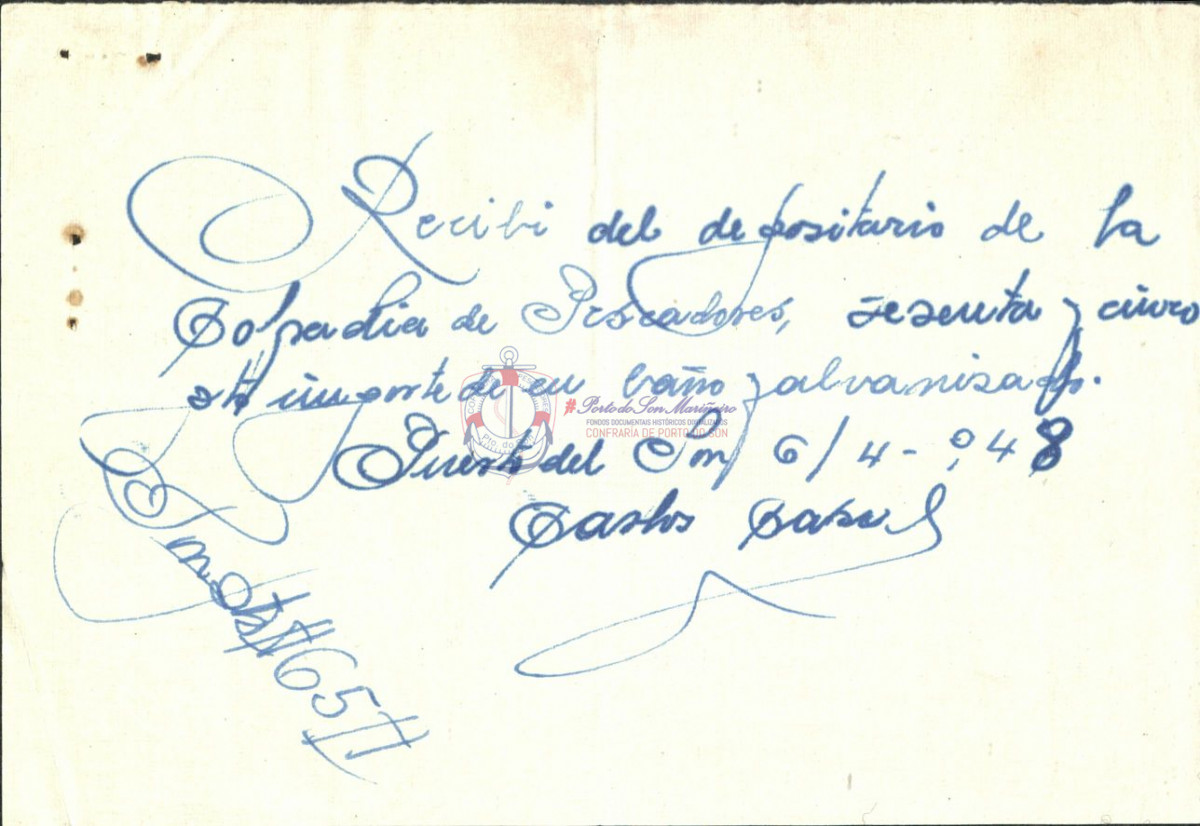 Recibi del depositario de la
Cofradia de Pescadores, sesenta y cinco
importe de un baño galvanisado.
Puerto del Son 6/4-948
Carlos
Son Pts #65#
#Porto do Son Mariñeiro
FONDOS DOCUMENTAIS HISTÓRICOS DIXITALIZADOS
CONFRARÍA DE PORTO DO SON
Pto. do Son